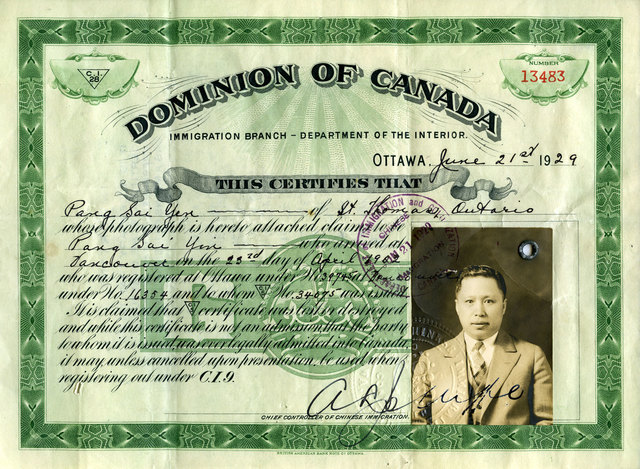 C.I. 28
NUMBER
13483
DOMINION OF CANADA
IMMIGRATION BRANCH – DEPARTMENT OF THE INTERIOR.
OTTAWA, June 21st 1929
THIS CERTIFIES THAT
Pang Sai Yen of St. Thomas, Ontario
whose photograph is hereto attached claims
Pang Sai Yen who arrived
Vancouver on the 23rd day of April
who was registered at Ottawa under No.
under No. 16354 and to whom No. 34075 was issued.
It is claimed that certificate was lost or destroyed
and while this certificate is not an admission that the party
to whom it is issued was ever legally admitted into Canada
it may, unless cancelled upon presentation, be used when
registering out under C.I.9.
CHIEF CONTROLLER OF CHINESE IMMIGRATION.
IMMIGRATION and
BRITISH AMERICAN BANK NOTE CO. OTTAWA.